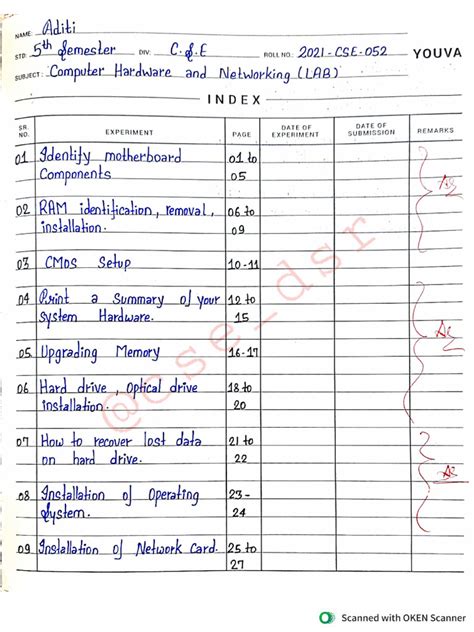 NAME: Aditi
STD.: 5th Semester DIV.: C.S.E ROLL NO.: 2021-CSE-052 YOUVA
SUBJECT: Computer Hardware and Networking (LAB)
INDEX
SR. NO. EXPERIMENT PAGE DATE OF EXPERIMENT DATE OF SUBMISSION REMARKS
01 Identify motherboard 01 to
Components 05
02 RAM identification, removal, 06 to
installation. 09
03 CMOS Setup 10-11
04 Print a Summary of your 12 to
System Hardware. 15
05. Upgrading Memory 16-17
06 Hard drive, Optical drive 18 to
installation. 20
07 How to recover lost data 21 to
on hard drive. 22
08 Installation of Operating 23-
System. 24
09 Installation of Network Card. 25 to
27
@cse_dsr
Scanned with OKEN Scanner